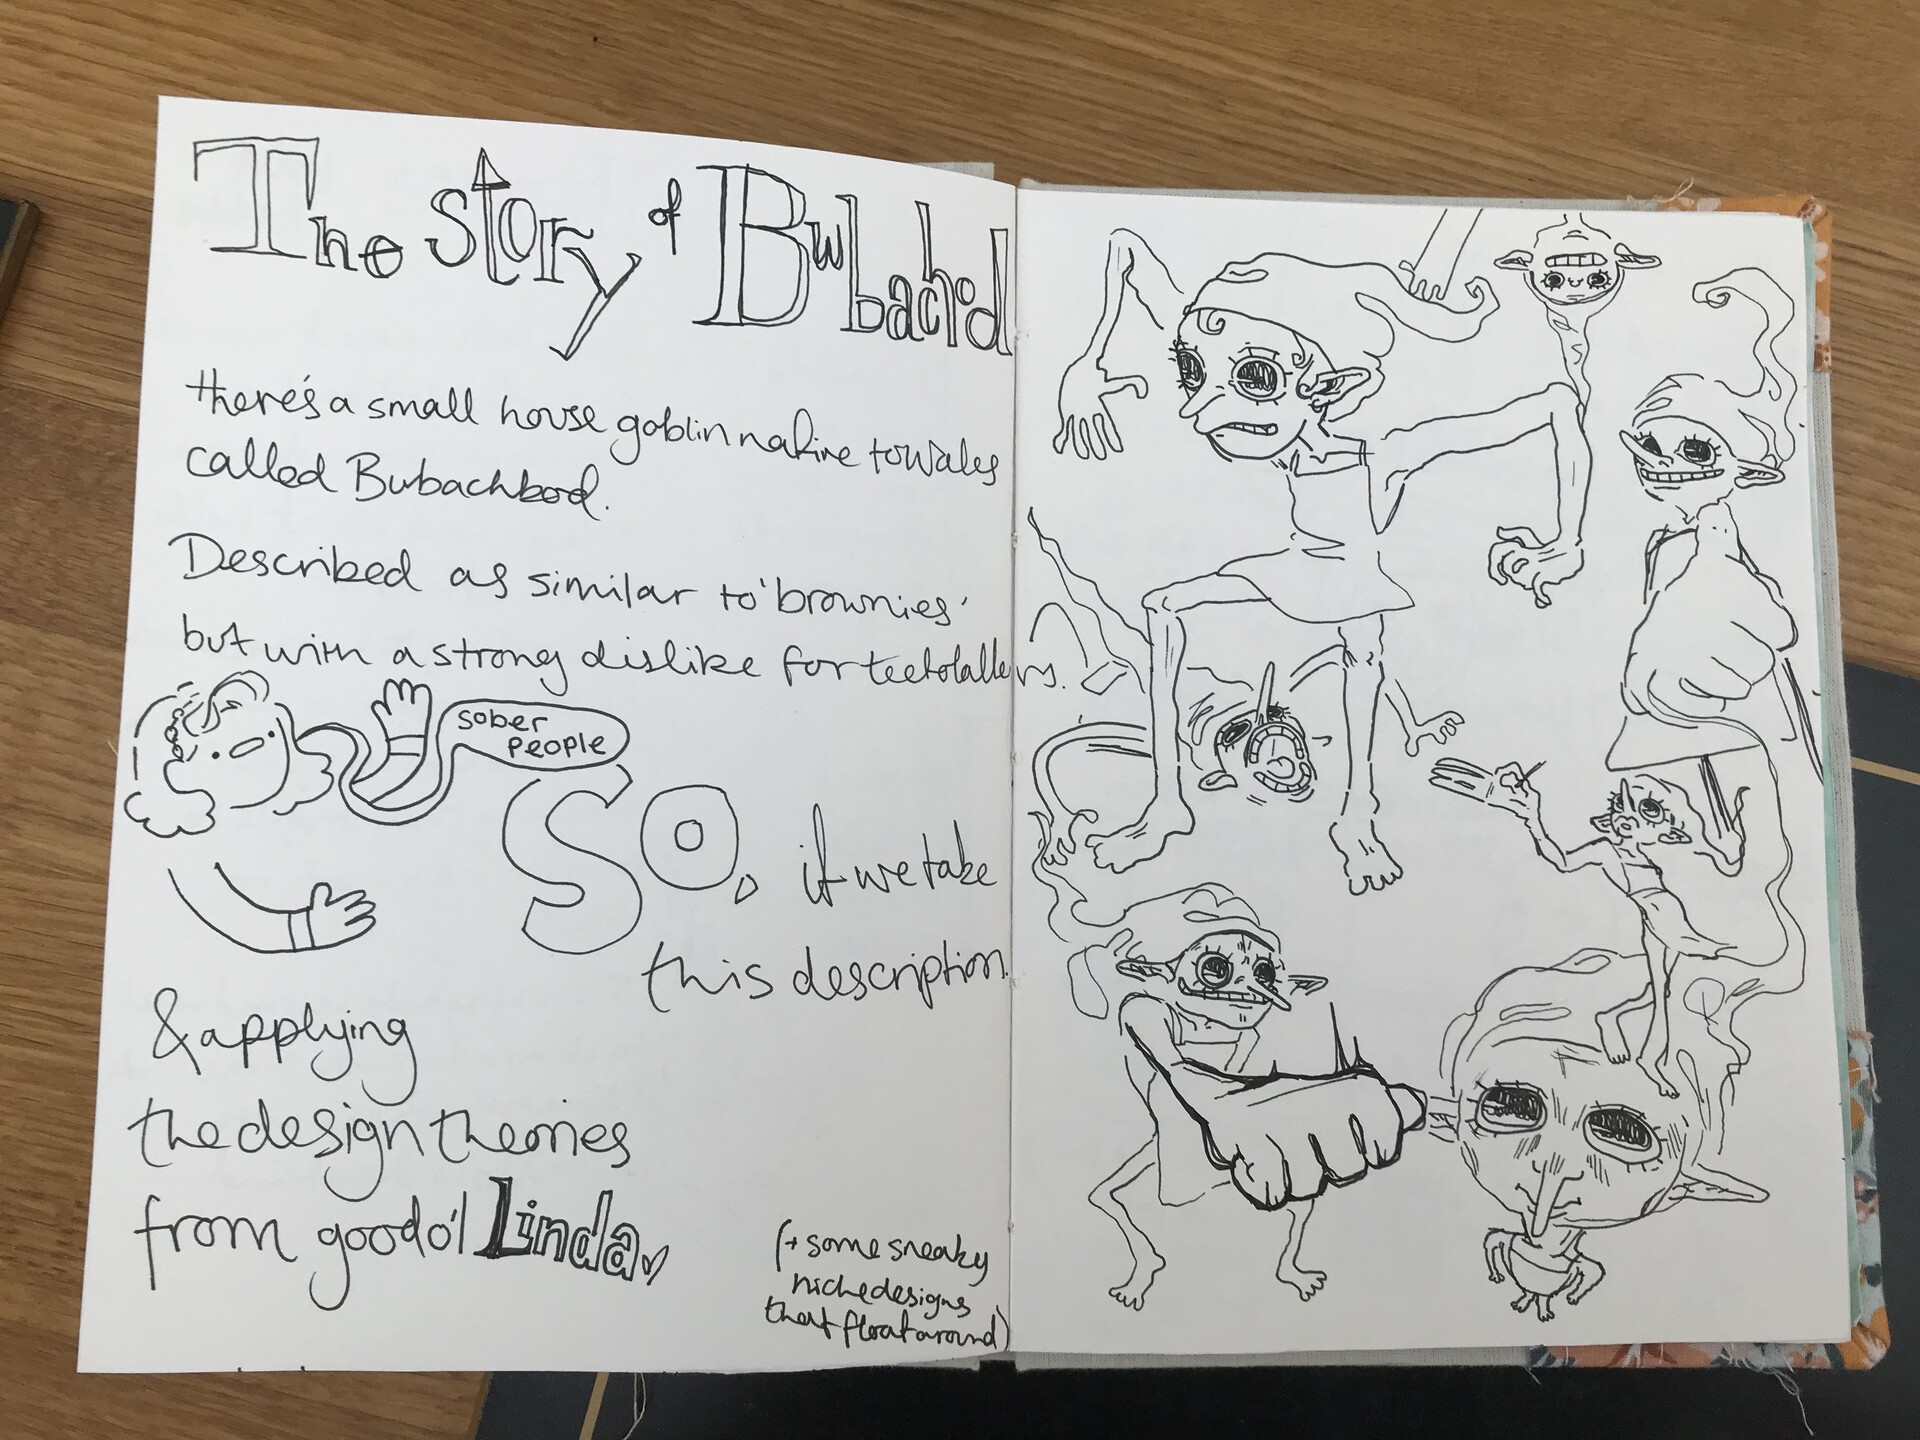 The story of Bwbachod
there's a small house goblin native to Wales
called Bubachbod.
Described as similar to 'brownies'
but with a strong dislike for teetotallers.
sober
people
SO, if we take
this description
& applying
the design theories
from good o'l Linda,
(+ some sneaky
niche designs
that float around)